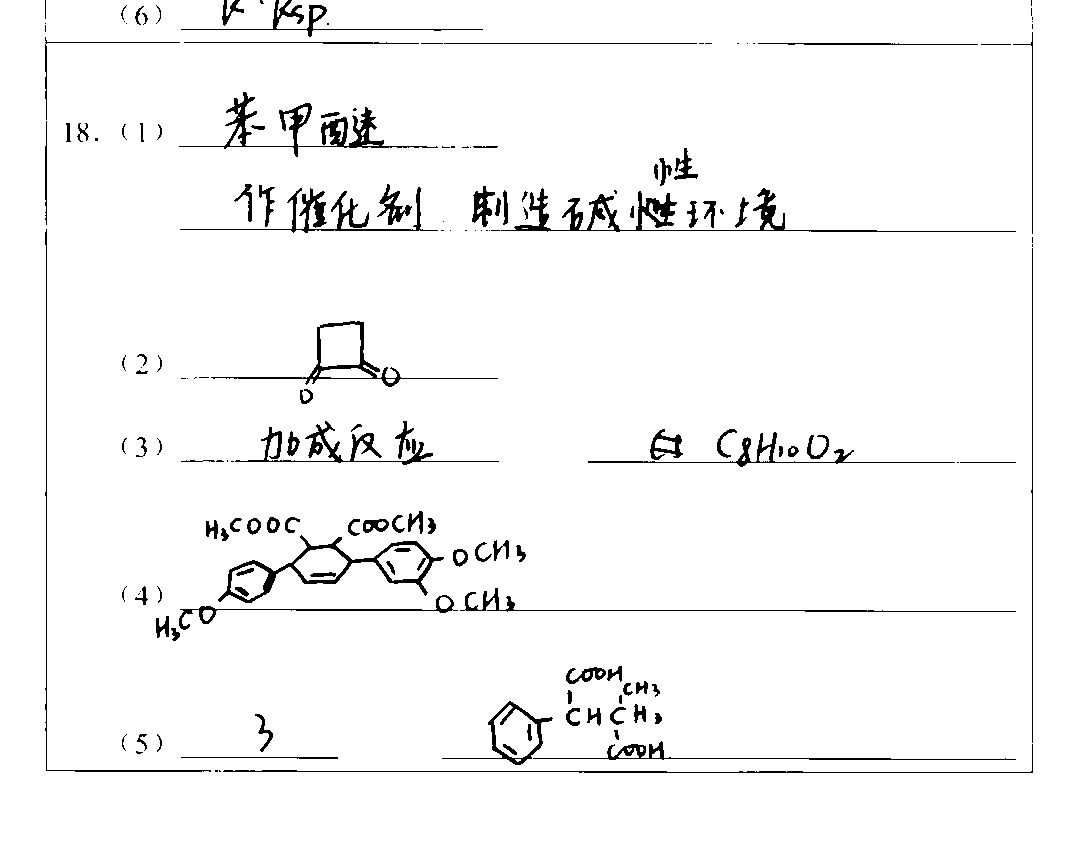 (6) K·Ksp.
18. (1) 苯甲醛
作催化剂 制造碱性环境
(2) O O
(3) 加成反应 C8H10O2
H3COOC COOCH3
OCH3
(4) OCH3
H3CO
COOH
CH3
CHCH3
(5) 3 COOH